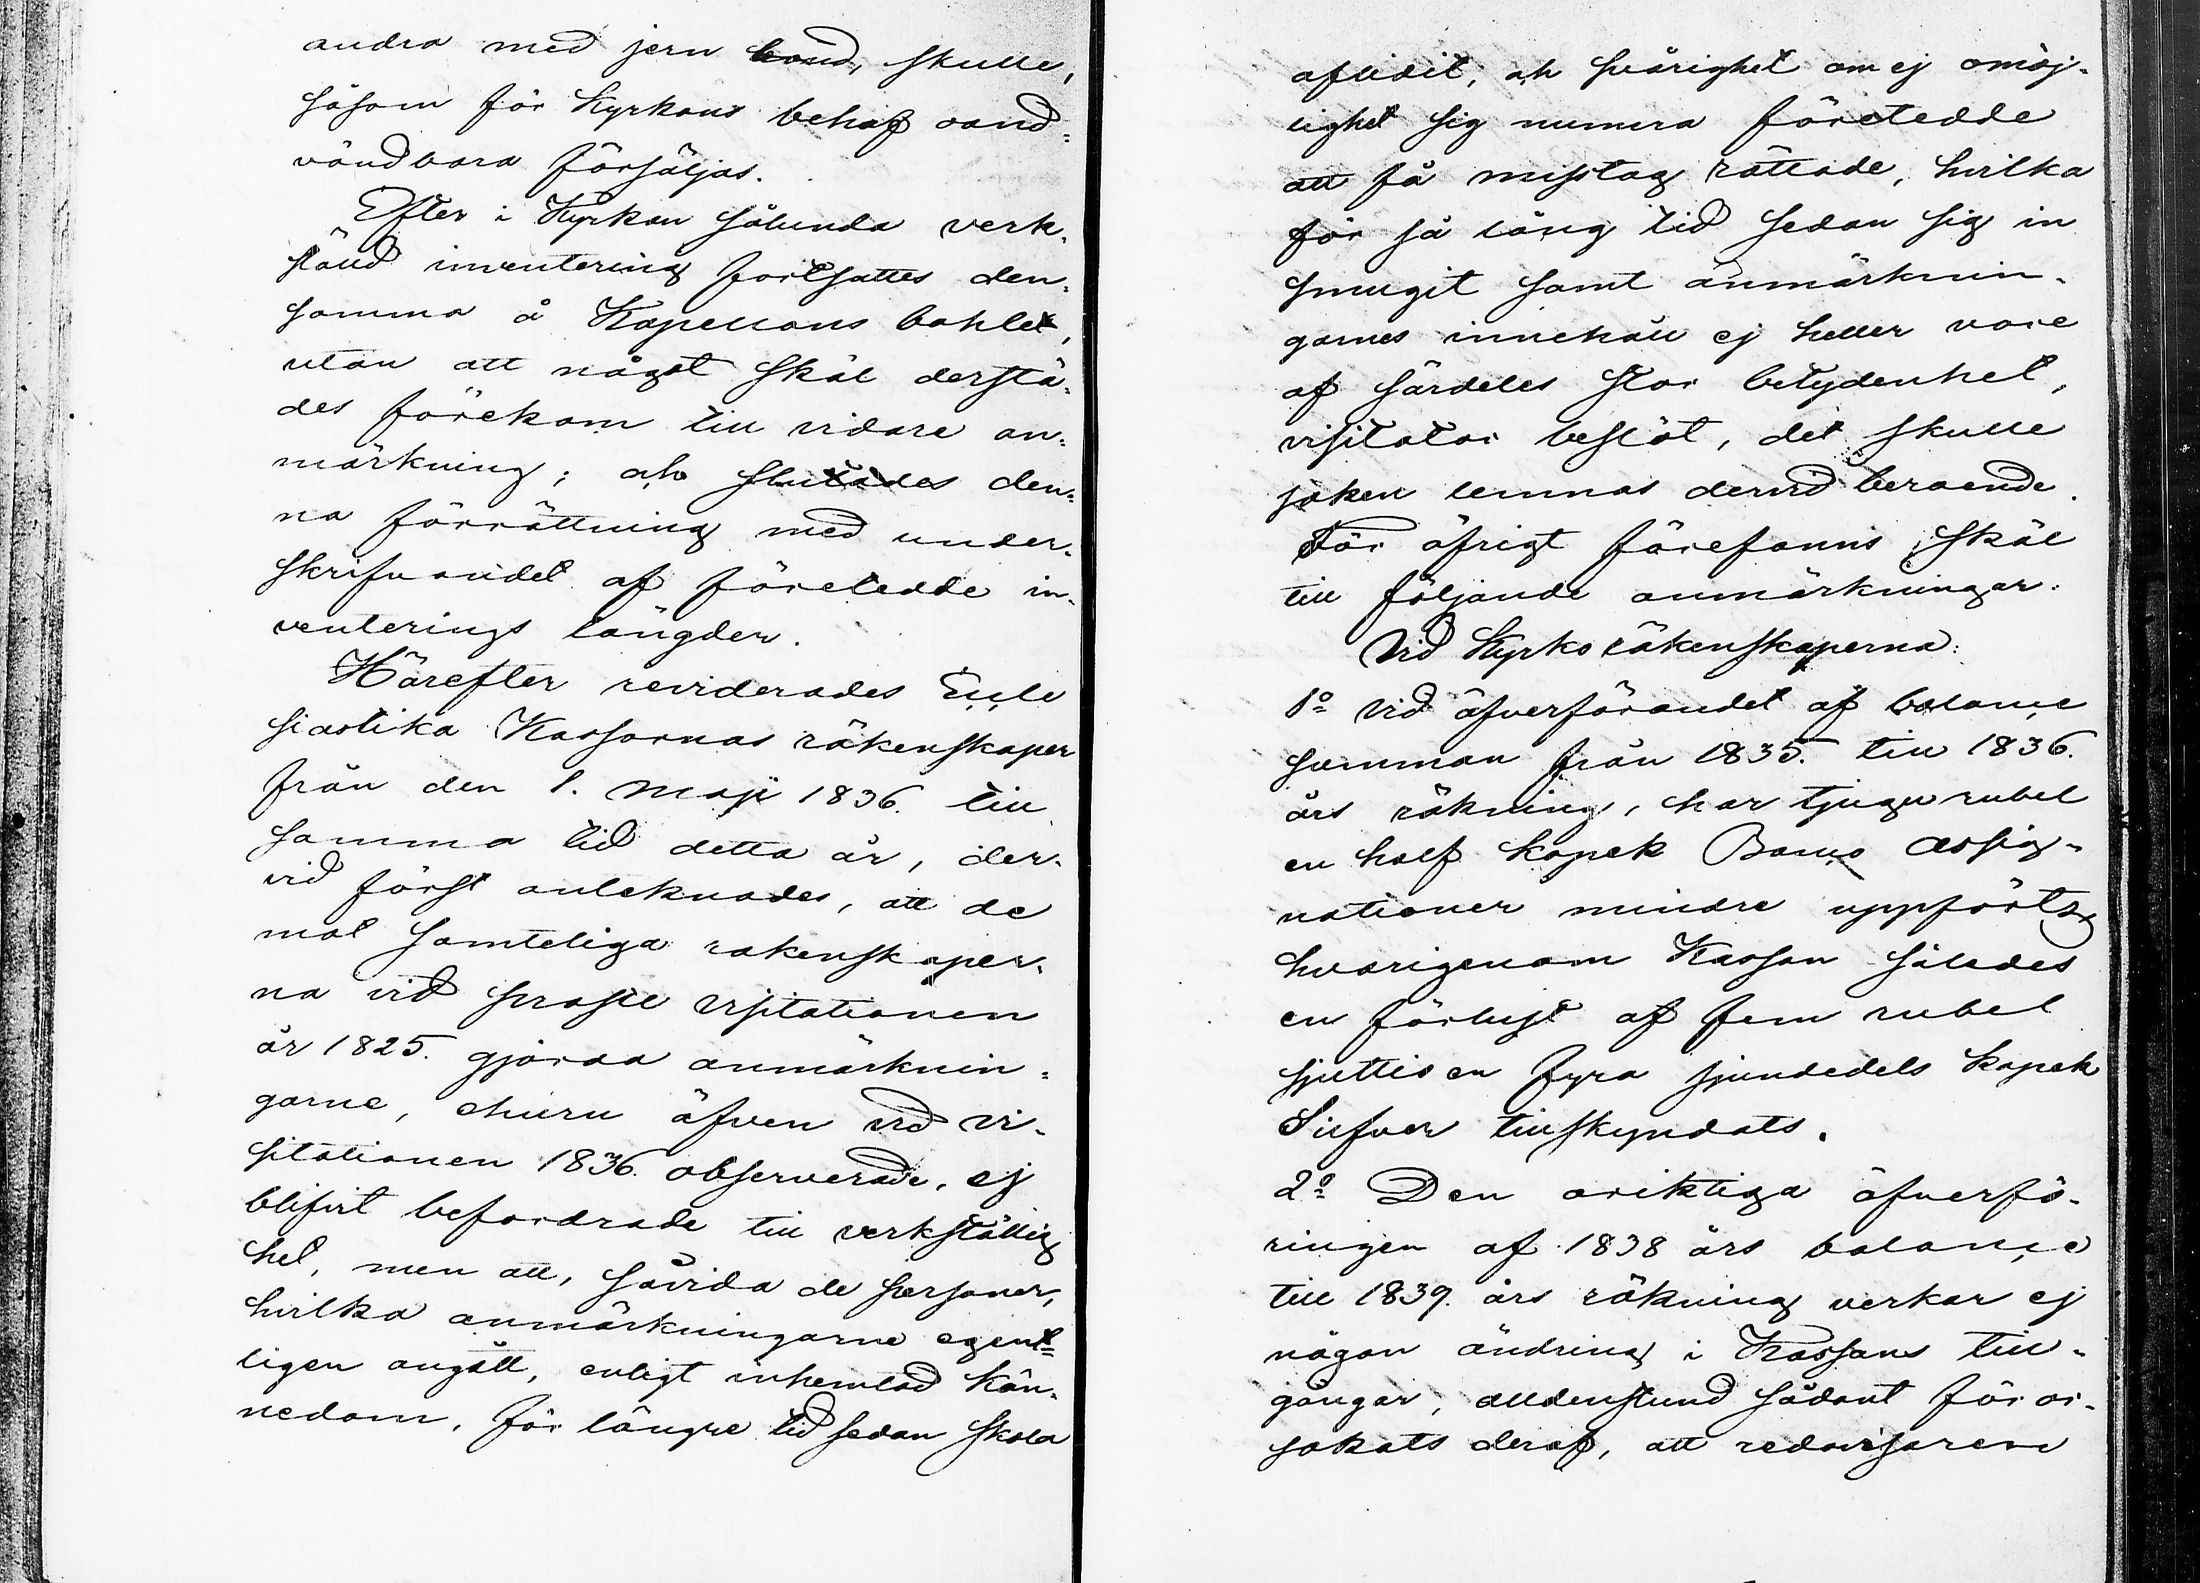 andra med jern band, skulle,
såsom för Kyrkans behof oand-
vändbara försäljas.
Efter i Kyrkan sålunda verk-
ställd inventering fortsattes den-
samma å Kapellans bohlet,
utan att något skäl derstä-
des förekom till vidare an-
märkning; och slutades den-
na förrättning med under-
skrifvandet af företedde in-
venterings längder.
Härefter reviderades Eccle
siastika Kassornas räkenskaper
från den 1. Maji 1836. till
samma tid detta år, der-
vid först anteknades, att de
mot samteliga rakenskaper-
na vid prosste visitationen
år 1825. gjorda anmärknin-
garne, ehuru äfven vid vi-
sitationen 1836. observerade, ej
blifvit befordrade till verkställig
het, men att, såvida de personer,
hvilka anmärkningarne egent-
ligen angått, enligt inhemtad kän-
nedom, för längre tid sedan skola
aflidit, och svårighet om ej omöj-
lighet sig numera företedde
att få misstag rättade, hvilka
för så lång tid sedan sig in
smugit samt anmärknin-
garnes innehåll ej heller vore
af särdeles stor betydenhet,
visitator beslöt, det skulle
saken lemnas dervid beroende.
För öfrigt förefanns skäl
till följande anmärkningar:
Vid Kyrko räkenskaperna:
1º Vid öfverförandet af balance
summan från 1835. till 1836.
års räkning, har tjugu rubel
en half kopek Banco Assig-
nationer mindre uppförts,
hvarigenom Kassan således
en förlust af fem rubel
sjuttio en fyra sjundedels kopek
Silfver tillskyndats.
2º Den oriktiga öfverfö-
ringen af 1838 års balance
till 1839. års räkning verkar ej
någon ändring i Kassans till-
gångar, alldenstund sådant för or-
sakats deraf, att redovisaren